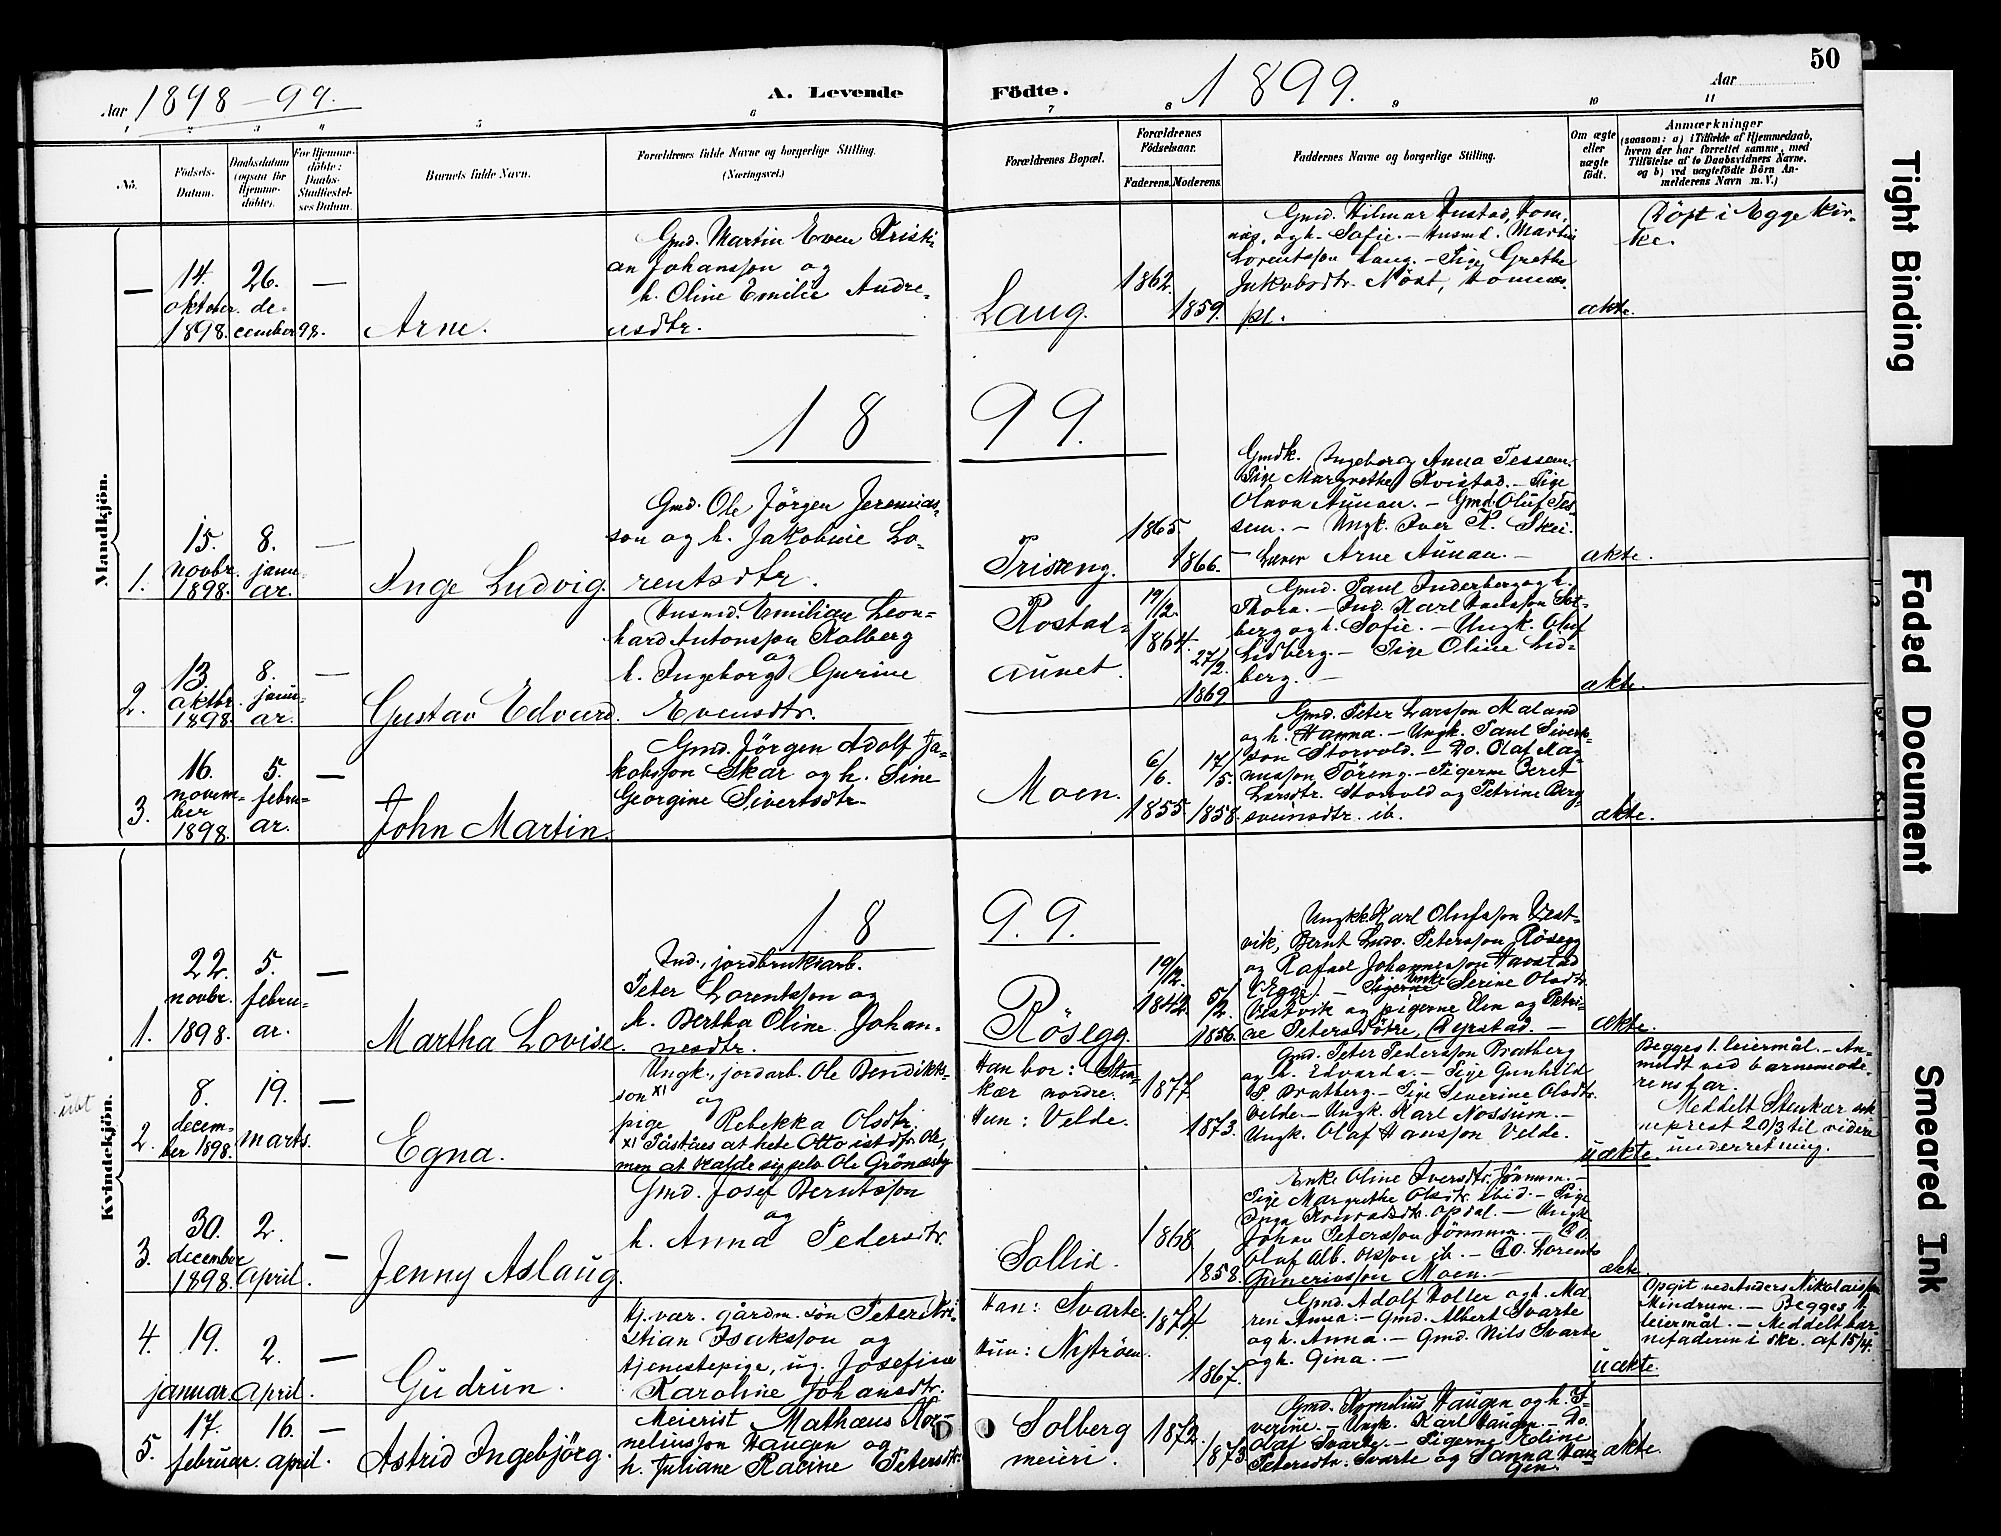 50
Aar 1898-99. A. Levende Födte. 1899. Aar
1 2 3 4 5 6 7 8 9 10 11
No.
Födsels-
Datum.
Daabsdatum
(ogsaa for
Hjemme-
döbte).
For Hjemme-
döbte:
Daabs-
Stadfæstel-
ses Datum.
Barnets fulde Navn.
Forældrenes fulde Navne og borgerlige Stilling.
(Næringsvei.)
Forældrenes Bopæl.
Forældrenes
Födselsaar.
Faderens. Moderens.
Faddernes Navne og borgerlige Stilling.
Om ægte
eller
uægte
födt.
Anmærkninger
(saasom: a) i Tilfælde af Hjemmedaab,
hvem der har forrettet samme, med
Tilföielse af to Daabsvidners Navne.
og b) ved uægtefödte Börn An-
melderens Navn m. V.)
Mandkjön.
—
14.
oktober
1898.
26.
de-
cember 98.
—
Arne.
Gmd. Martin Even Kristi-
an Johansson og
h. Oline Emilie Andre-
asdtr.
Laug.
1862.
1859.
Gmd. Hilmar Hustad, Hom-
næs, og h. Sofie. — Husmd. Martin
Lorentsson Laug. — Pige Grethe
Jakobsdtr. Nöst, Homnæs-
pl.
ækte.
Döpt i Egge kir-
ke.
18 99.
1.
15.
novbr.
1898.
8.
janu-
ar.
—
Inge Ludvig.
Gmd. Ole Jörgen Jeremias-
son og h. Jakobine Lo-
rentsdtr.
Triseng.
1865.
1866.
Gmdk. Ingeborg Anna Tessem.
Pige Margrethe Kvistad. — Pige
Olava Aunan. — Gmd. Oluf Tes-
sem. — Ungk. Iver K. Skei.
— Lærer Arne Aunan. —
ækte.
2.
13.
oktbr.
1898.
8.
janu-
ar.
—
Gustav Edvard.
Husmd. Emilian Leon-
hard Antonsson Kolberg
og
h. Ingeborg Gurine
Evensdtr.
Rostad-
aunet.
19/2.
1864.
27/2.
1869
Gmd. Paul Inderberg og h.
Thora. — Ind. Karl Isaksson Sol-
berg og h. Sofie. — Ungk. Oluf
Lidberg. — Pige Oline Lid-
berg. —
ækte.
3.
16.
novem-
ber
1898.
5.
febru-
ar.
—
John Martin.
Gmd. Jörgen Adolf Ja-
kobsson Skar og h. Sine
Georgine Sivertsdtr.
Moen.
6/6
1855.
17/5.
1858.
Gmd. Peter Larsson Maland
og h. Hanna. — Ungk. Paul Siverts-
son Storvold. — Do. Olaf Mag-
nusson Töring. — Pigerne Beret
Larsdtr. Storvold og Petrine Berg-
sveinsdtr. ib.
ækte.
Kvindekjön.
18 99.
1.
22.
novbr.
1898.
5.
febru-
ar.
—
Martha Lovise.
Ind., jordbruksarb.
Peter Lorentsson og
h. Bertha Oline Johan-
nesdtr.
Rösegg.
19/12.
1842.
5/2.
1856.
Ungkk. Karl Olufsson Vest-
vik, Bernt Ludv. Petersson Rösegg
og Rafael Johannesson Havstad
(Egge). — Pigerne Serine Olsdtr.
Vestvik og pigerne Elen og Petri-
ne Petersdötre, Ryrstad. —
ækte.
2.
8.
decem-
ber 1898.
19.
marts.
—
Egna.
Ungk., jordarb. Ole Bendikts-
son x)
og
pige Rebekka Olsdtr.
x) Påståes at hete Otto istdf. Ole,
men at kalde sig selv Ole Grönæsby
Han bor: Sten-
kær nordre.
Hun: Velde.
1877.
1873.
Gmd. Peter Pedersson Bratberg
og h. Edvarda. — Pige Gunhild
P. Bratberg. — Pige Severine Olsdtr.
Velde. — Ungk. Karl Nossum. —
Ungk. Olaf Hansson Velde.
uækte.
Begges 1. leiermål. — An-
meldt ved barnemode-
rens far.
Meddelt Stenkær sok-
neprest 20/3 til videre
underretning.
3.
30.
december
1898.
2.
april.
—
Jenny Aslaug.
Gmd. Josef Berntsson
og
h. Anna Pedersdtr.
Sollid.
1868
1858.
Enke Oline Iversdtr. Jönnum. —
Pige Margrethe Olsdtr. ibid. — Pige
Inga Konradsdtr. Opdal. — Ungk.
Johan Petersson Jönnum. — Do.
Olaf Alb. Olsson ib. — Do. Lorents
Guneriusson Moen. —
ækte.
4.
19.
januar.
2.
april.
—
Gudrun.
Hj.vær. gårdm. sön Peter Kri-
stian Isaksson og
tjenestepige, ug. Josefine
Karoline Johansdtr.
Han: Svarte.
Hun: Nyströen.
1874.
1867.
Gmd. Adolf Holler og h. Ma-
ren Anna. — Gmd. Albert Svarte
og h. Anna. — Gmd. Nils Svarte
og h. Gina. —
uækte.
Opgit ved Anders Nikolaisson
Mindrum. — Begges 1.
leiermål. — Meddelt bar-
nefaderen i skr. af 15/4.
5.
17.
februar.
16.
april.
—
Astrid Ingebjörg.
Meierist Mathæus Kor-
neliusson Haugen og
h. Juliane Kaline Petersdtr.
Solberg
meieri.
1872.
1873
Gmd. Kornelius Haugen og h. I-
verine. — Ungk. Karl Haugen. — Do.
Olaf Svarte. — Pigerne Eline
Petersdtr. Svarte og Sanna Hau-
gen.
ækte.
Tight Binding
Faded Document
Smeared Ink